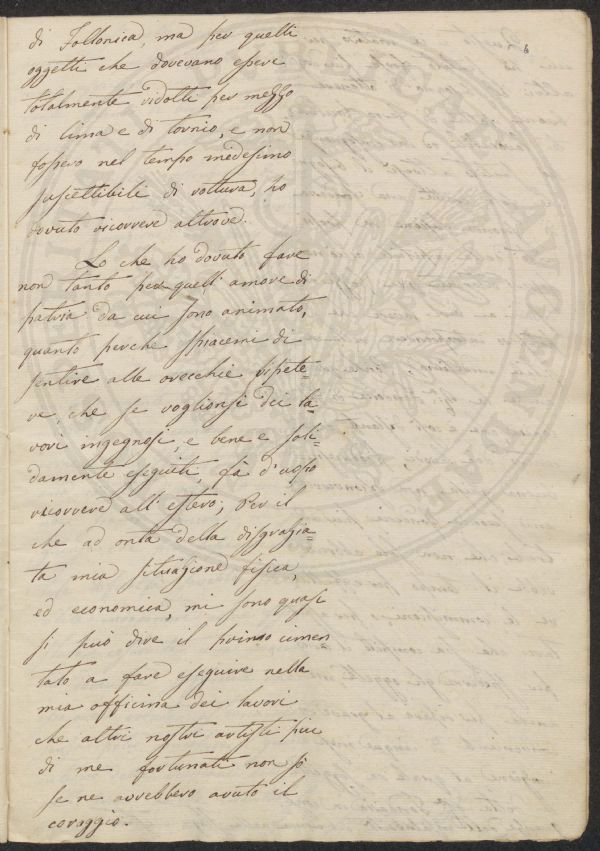 6
di Follonica, ma per quelli
oggetti che dovevano essere
totalmente ridotti per mezzo
di lima e di tornio, e non
fossero nel tempo medesimo
suscettibili di rottura, ho
dovuto ricorrere altrove.
Lo che ho dovuto fare
non tanto per quell' amore di
patria da cui sono animato,
quanto perche spiacemi di
sentire alle orecchie ripete=
re, che se voglionsi dei la=
vori ingegnosi, e bene e soli=
damente eseguiti, fà d'uopo
ricorrere all' estero; Per il
che ad onta della disgrazia=
ta mia situazione fisica,
ed economica, mi sono quasi
si può dire il primo cimen
tato a fare eseguire nella
mia officina dei lavori
che altri nostri artisti più
di me fortunati non si
se ne avrebbero avuto il
coraggio.